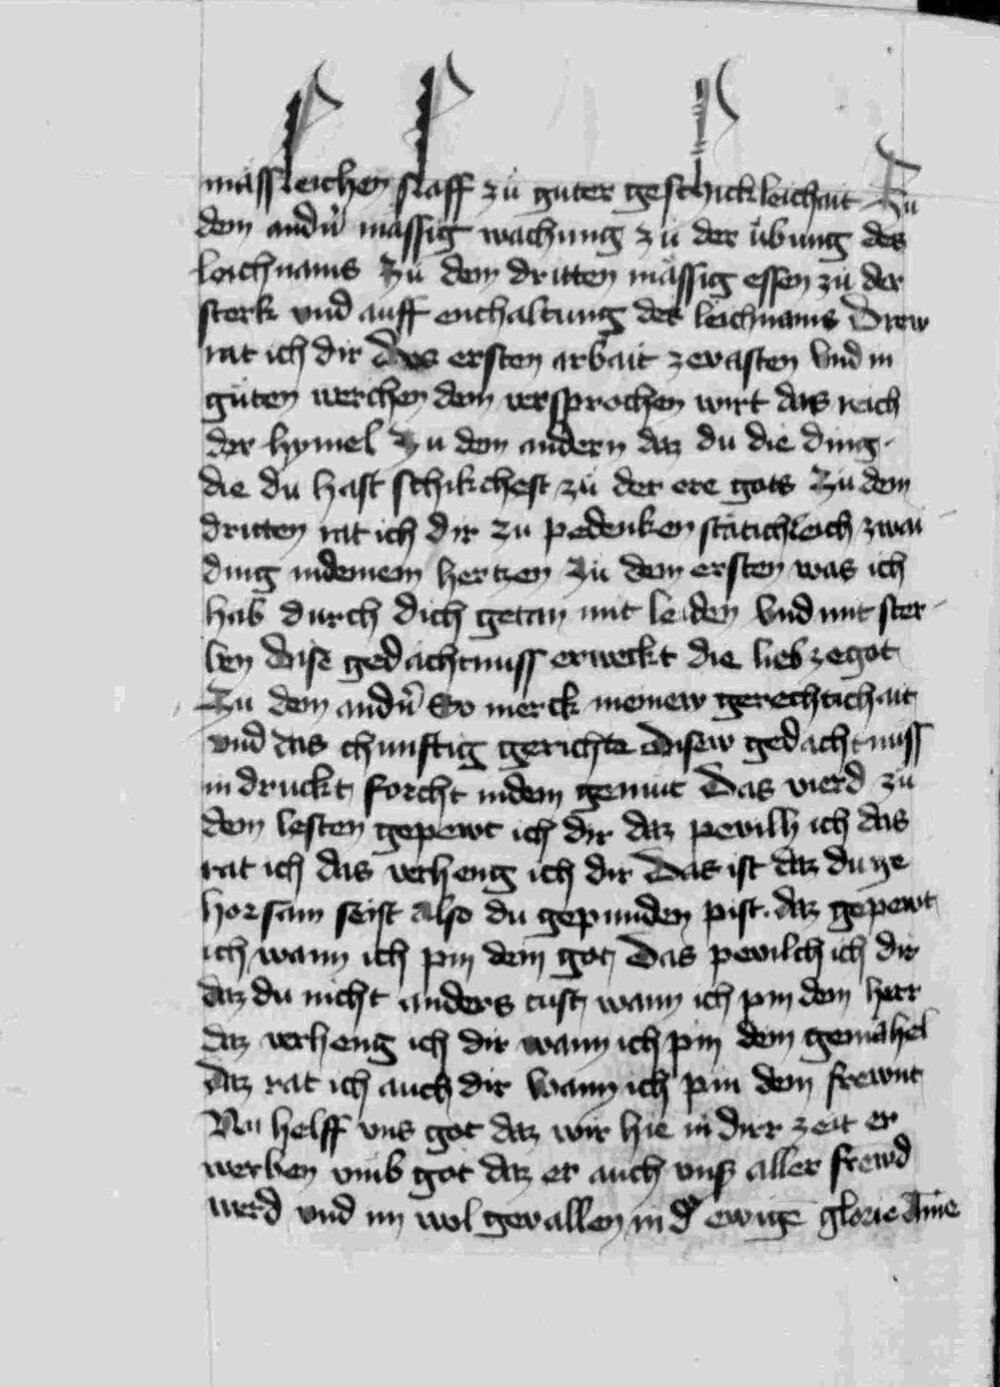 mässleichen slaff zů guter geschickleichait Zu
dem andn̄ mässig wachung zu der übung des
leichnams Zů dem dritten mässig essen zů der
sterk vnd auff enthaltung des leichnams Drew
rat ich dir Des ersten arbait zevasten Vnd in
gůten werchen dem versprochen wirt das reich
der hymel Zu dem andern daz du die ding
die du hast schikchest zů der ere gots Zů dem
dritten rat ich dir zu pedenken stätichleich zwai
ding in deinem hertzen Zů dem ersten was ich
hab durch dich getan mit leiden Vnd mit ster
ben Dise gedächtnuss erwekt die lieb ze got
Zu dem andn̄ So merck meinew gerechtichait
vnd das chünftig gerichte Disew gedachtnuss
in druckt forcht in dem gemüt Das vierd zů
dem lesten gepewt ich dir daz pevilh ich das
rat ich das verheng ich dir Das ist daz du ge
horsam seist Also du gepunden pist. daz gepewt
ich wann ich pin dein got Das pevilch ich dir
daz du nicht anders tust wann ich pin dein herr
daz verheng ich dir wann ich pin dein gemähel
daz rat ich auch dir Wann ich pin dein frewnt
Nu helff vns got daz wir hie in dirr zeit er
werben vmb got daz er auch vnsz aller frewd
werd vnd im wol gevallen in d̕ ewigē glorie Amē